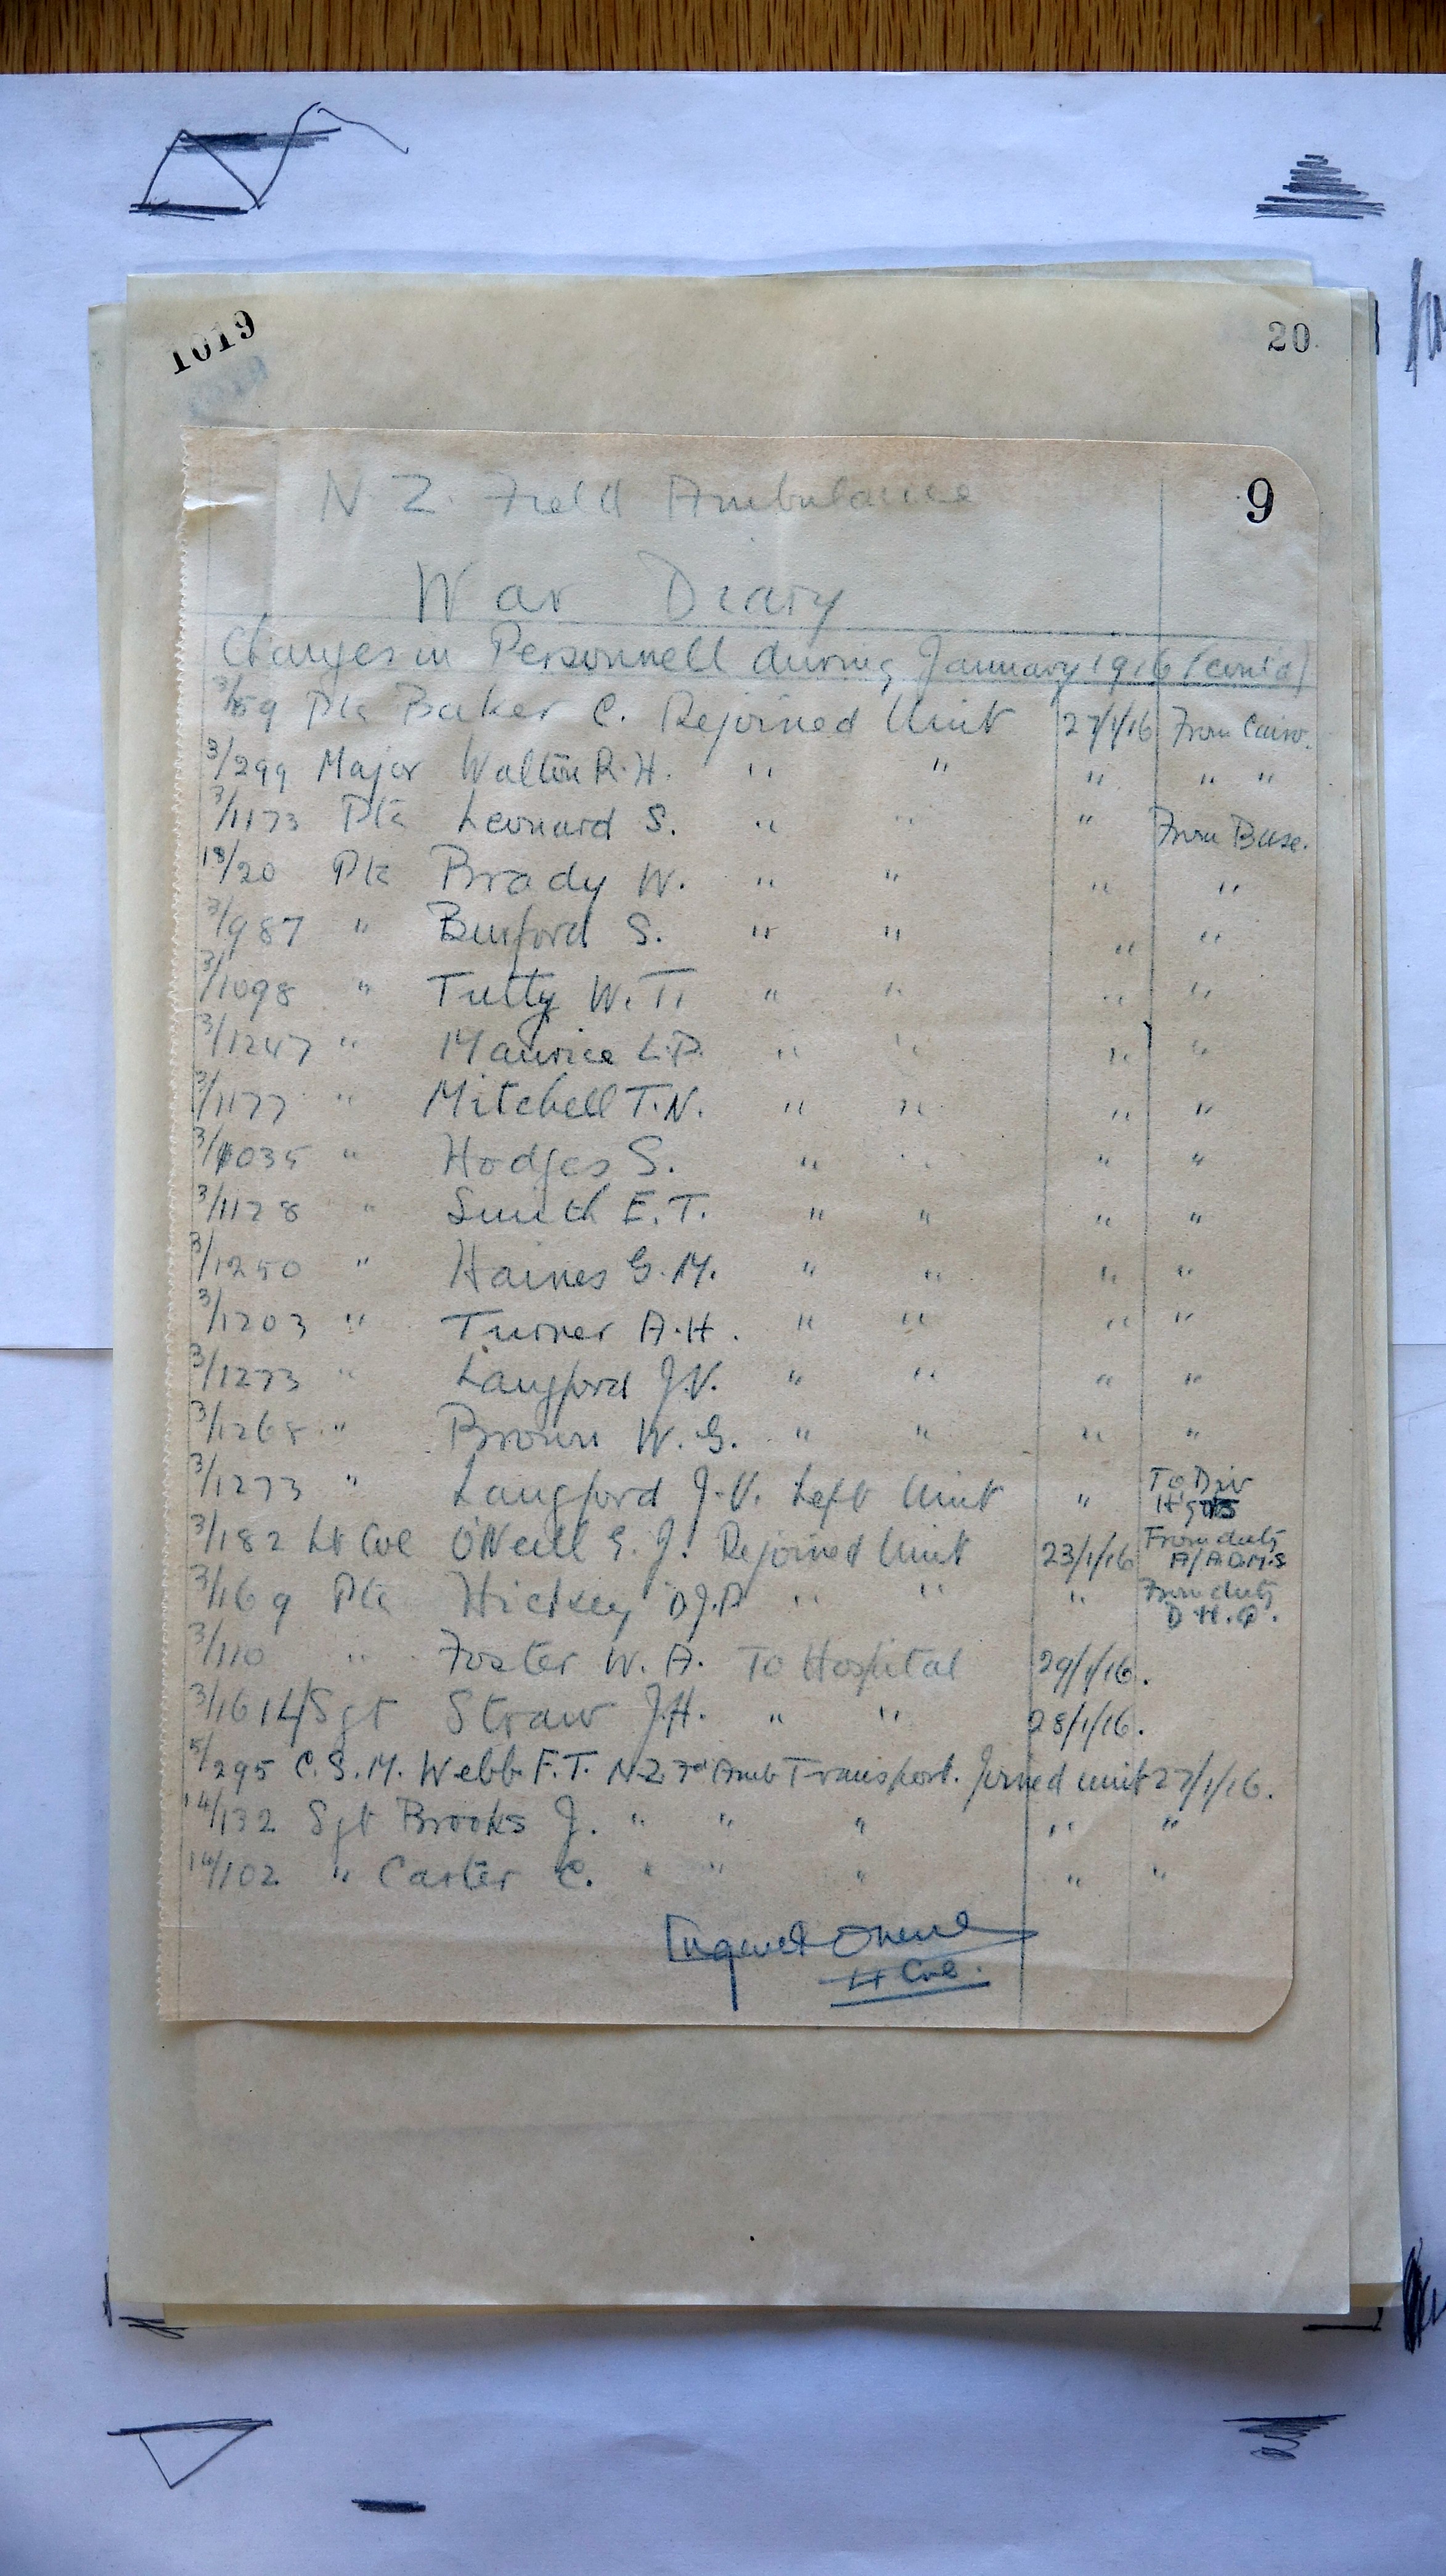 1019
20
9
N. Z. Field Ambulance
War Diary
Changes in Personnell during January 1916 (cont'd)
3/159 Pte Baker C. Rejoined Unit 27/1/16 From Cairo.
3/299 Major Walton R. H. " " " " "
3/1173 Pte Leonard S. " " " From Base.
18/20 Pte Brady W. " " " "
3/987 " Burford S. " " " "
3/1098 " Tutty W. T. " " " "
3/1247 " Maurice L.P. " " " "
3/1177 " Mitchell T. N. " " " "
3/1035 " Hodges S. " " " "
3/1128 " Smith E. T. " " " "
3/1250 " Haines G. M. " " " "
3/1203 " Turner A. H. " " " "
3/1273 " Langford J. V. " " " "
3/1268 " Brown W. G. " " " "
3/1273 " Langford J. V. Left Unit " To Div
3/182 Lt Col O'Neill E. J. Rejoined Unit 23/1/16 From duty A/A.D.M.S
3/169 Pte Hickey D.J.P " " " From duty D. H. Q.
3/110 " Foster W. A. To Hospital 29/1/16.
3/161 L/Sgt Straw J.H. " " 28/1/16.
5/295 C. S. M. Webb F. T. N Z Fd Amb Transport. Joined unit 27/1/16.
14/132 Sgt Brooks J. " " " " "
14/102 " Carter C. " " " " "
Lt Col.